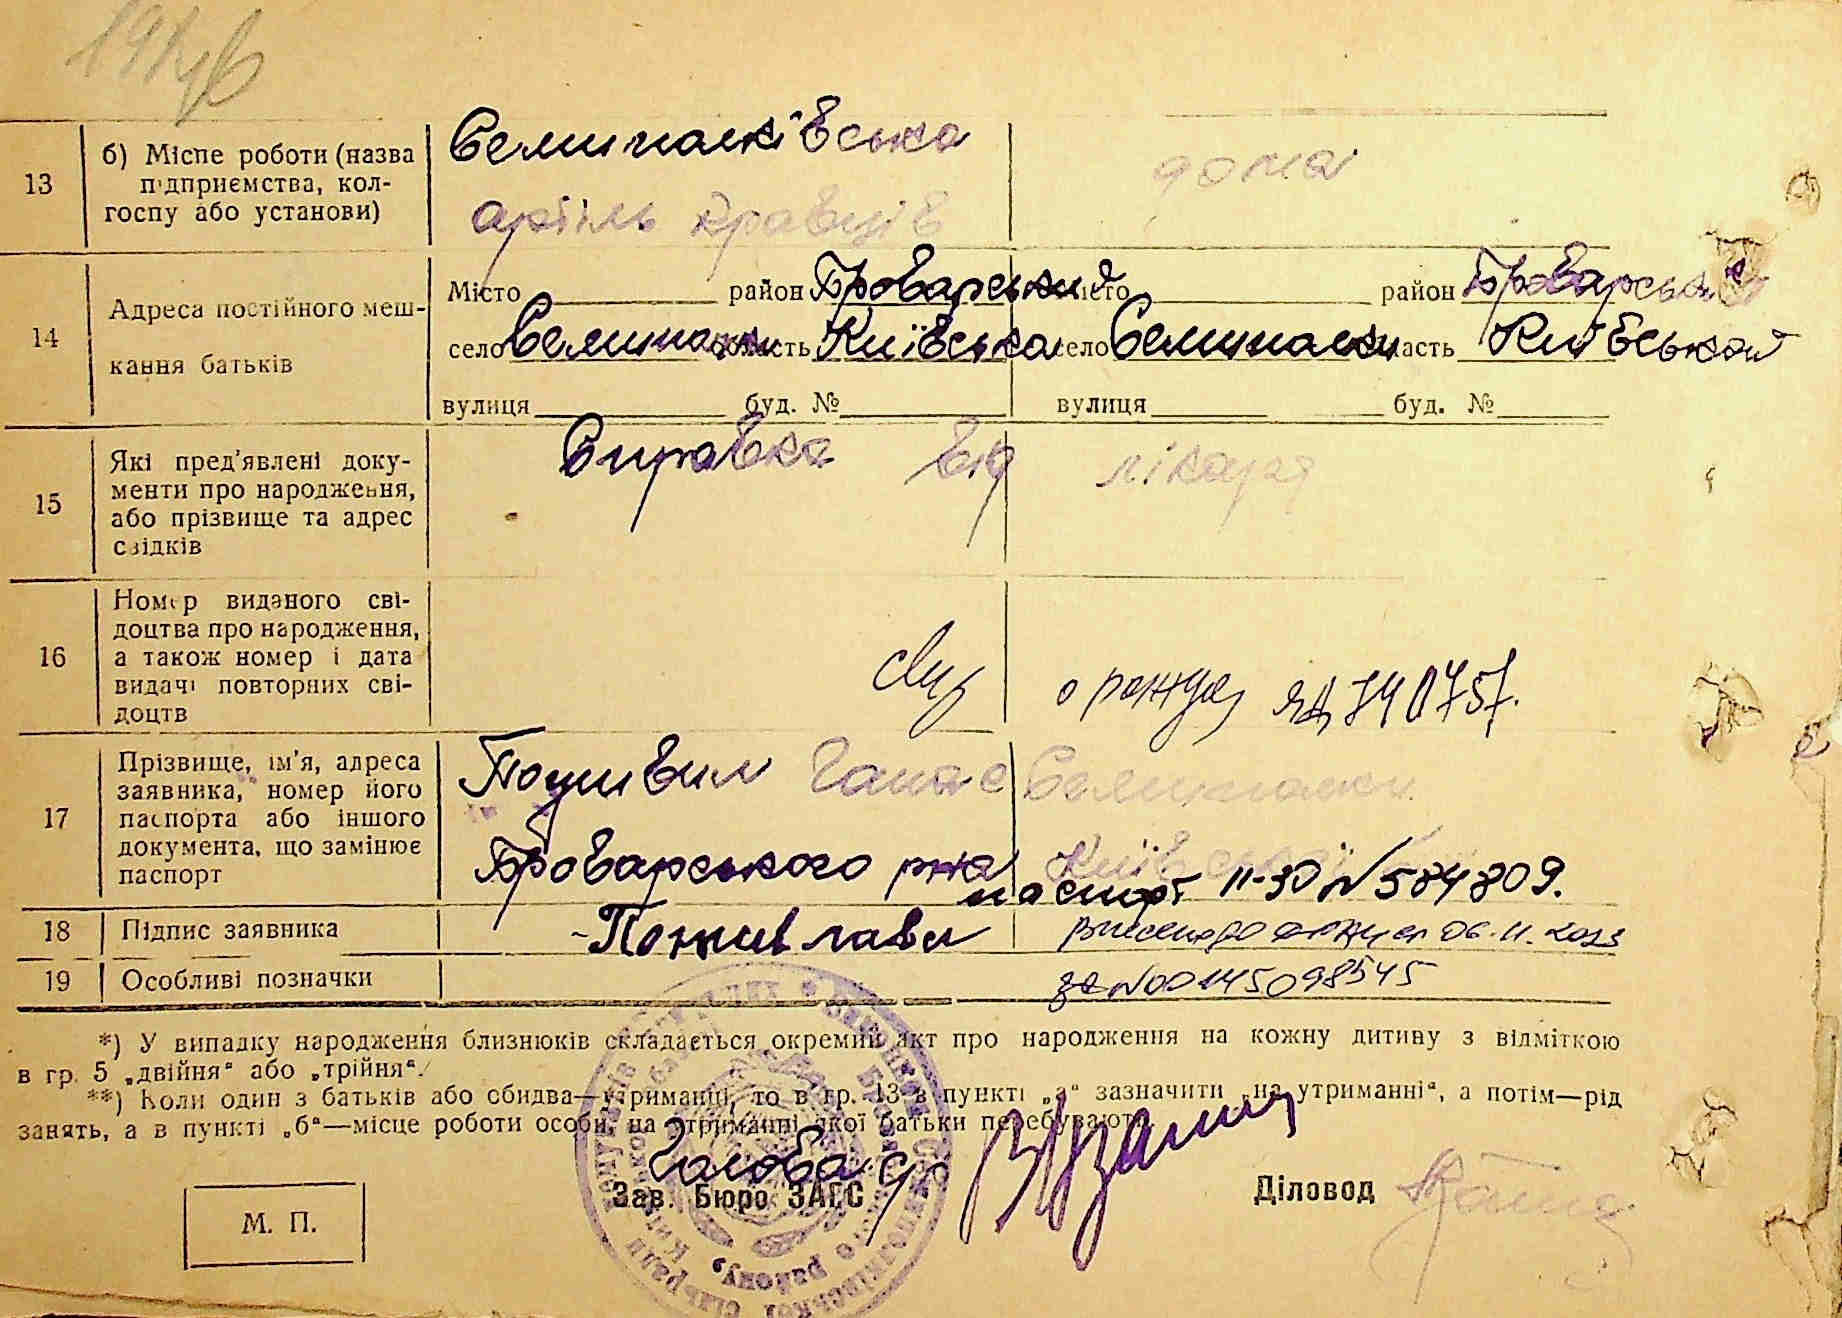 13
б) Місце роботи (назва
підприємства, кол-
госпу або установи)
Семиполківська
артіль кравців
дома
14
Адреса постійного меш-
кання батьків
Місто район Броварський
село Семиполки область Київська
вулиця буд. №
Місто район Броварський
село Семиполки область Київської
вулиця буд. №
15
Які пред'явлені доку-
менти про народження,
або прізвище та адрес
свідків
Справка від лікаря
16
Номер виданого сві-
доцтва про народження,
а також номер і дата
видачі повторних сві-
доцтв
о рожд ЯД 740757.
17
Прізвище, ім'я, адреса
заявника, номер його
паспорта або іншого
документа, що замінює
паспорт
с Семиполки
Броварського р-на Київської
паспорт II-ЗО № 584809.
18
Підпис заявника
06.11.2023
19
Особливі позначки
за №00145098545
*) У випадку народження близнюків складається окремий акт про народження на кожну дитину з відміткою
в гр. 5 „двійня“ або „трійня“.
**) Коли один з батьків або обидва—утриманці, то в гр. 13 в пункті „а“ зазначити „на утриманні“, а потім—рід
занять, а в пункті „б“—місце роботи особи, на утриманні якої батьки перебувають.
Голова с/р
Зав. Бюро ЗАГС
Діловод
М. П.